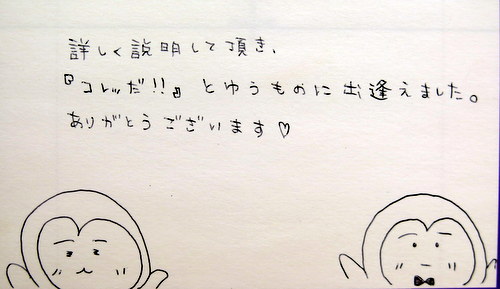 詳しく説明して頂き、
『コレッだ!!』とゆうものに出逢えました。
ありがとうございます♡